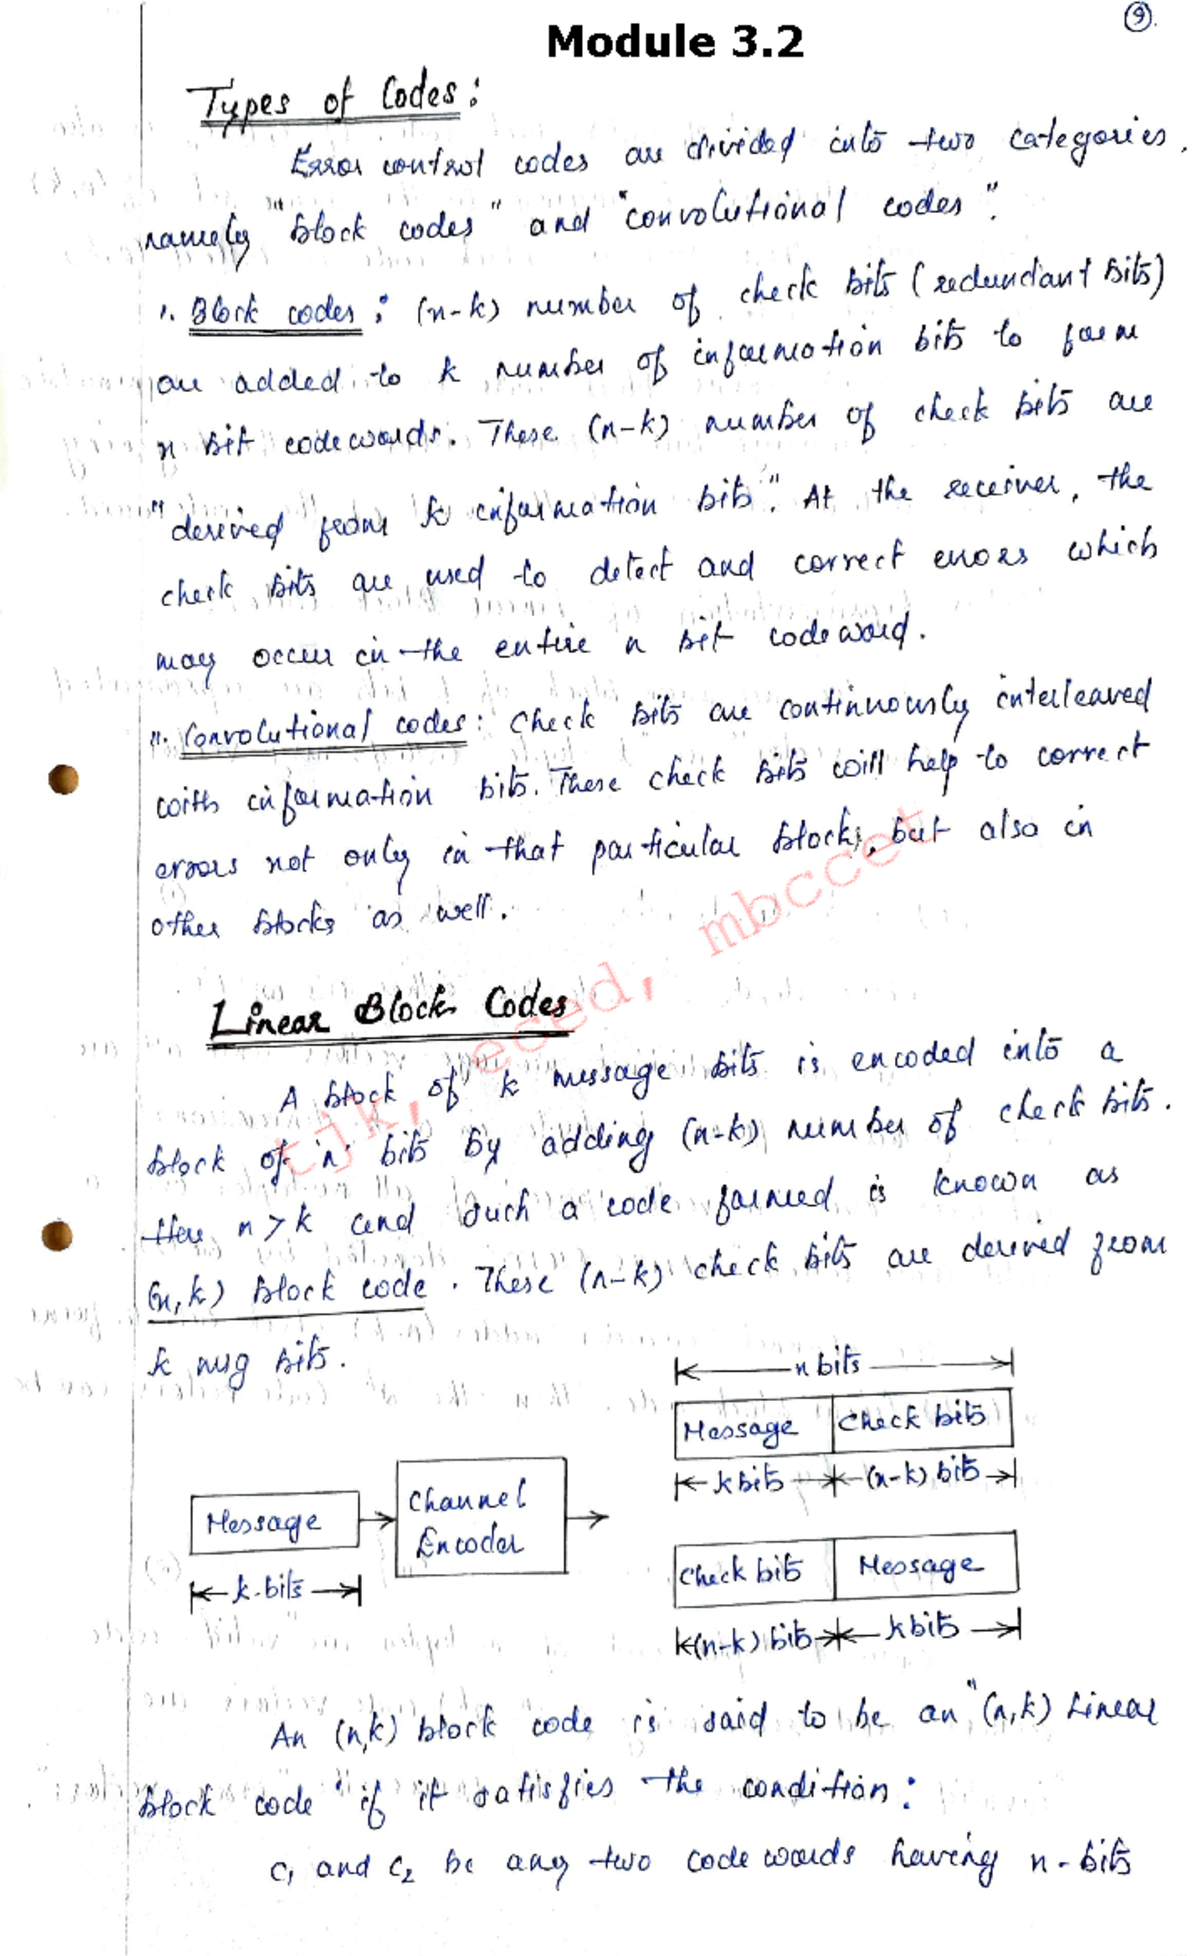 9
Module 3.2
Types of Codes:
Error control codes are divided into two categories,
namely "block codes" and "convolutional codes".
1. Block codes: (n-k) number of check bits (redundant bits)
are added to k number of information bits to form
n bit codewords. These (n-k) number of check bits are
"derived from k information bits". At the receiver, the
check bits are used to detect and correct errors which
may occur in the entire n bit codeword.
11. Convolutional codes: Check bits are continuously interleaved
with information bits. These check bits will help to correct
errors not only in that particular block, but also in
other blocks as well.
tjk, eced, mbccet
Linear Block Codes
A block of k message bits is encoded into a
block of 'n' bits by adding (n-k) number of check bits.
Here n > k and such a code formed is known as
(n,k) block code. These (n-k) check bits are derived from
k msg bits.
n bits
Message Check bits
k bits (n-k) bits
Message
Channel
Encoder
k-bits
Check bits Message
(n-k) bits k bits
An (n,k) block code is said to be an "(n,k) Linear
block code" if it satisfies the condition:
C1 and C2 be any two code words having n-bits